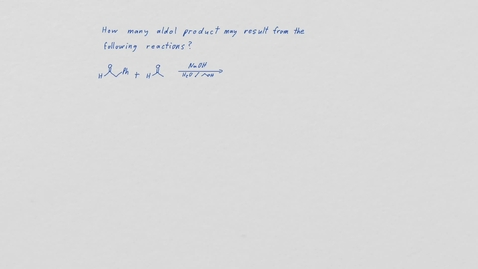 How many aldol product may result from the
following reactions?
H O Ph + H O NaOH
H₂O / OH